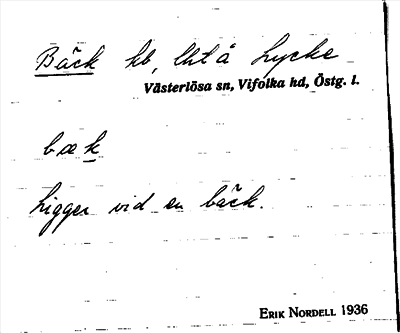 Bäck hb, tht å Lycke
Västerlösa sn, Vifolka hd, Östg. l.
bæk
Ligger vid en bäck.
ERIK NORDELL 1936